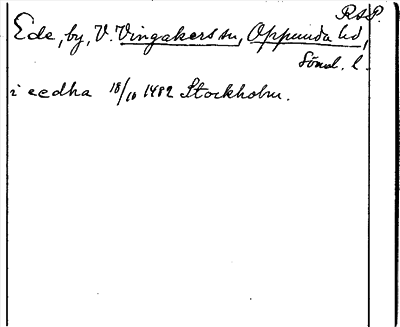 R&P.
Ede, by, V. Vingakers sn, Oppunda hd,
Söml. l.
i eedha 18/10 1482 Stockholm.